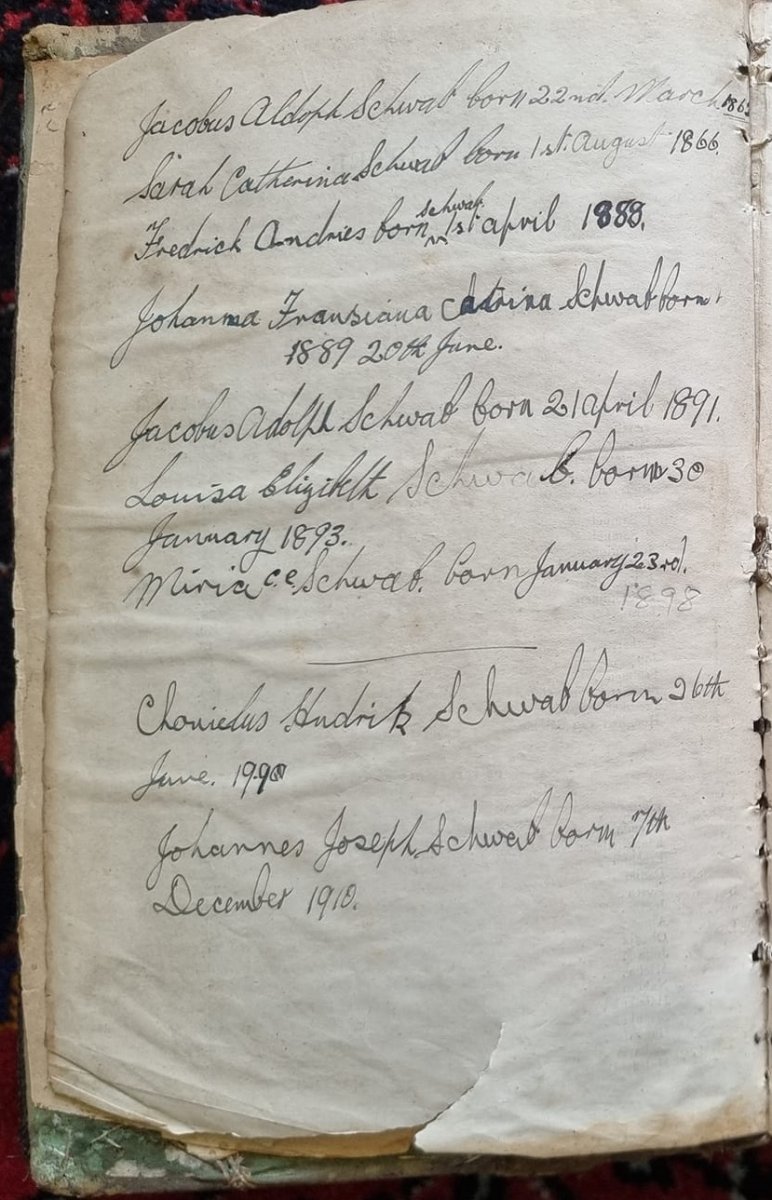 Jacobus Aldoph Schwab born 22nd. March
Sarah Catherina Schwab born 1st. August 1866.
Fredrick Andries born Schwab 1st april 1888.
Johanna Fransiana Catrina Schwab born
1889 20th June.
Jacobus Adolph Schwab born 21 april 1891.
Louisa Elizibeth Schwab. born 30
January 1893.
Miria C.C. Schwab. born January 23rd.
1898
Hndrik Schwab born 26th
June.
Johannes Joseph Schwab born 7th
December 1910.